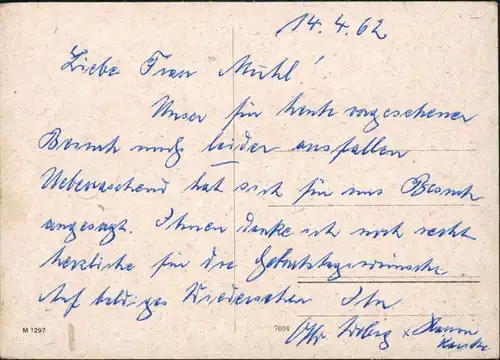 14.4.62
Liebe Frau Mühl!
Unser für heute vorgesehener
Besuch muß leider ausfallen.
Ueberraschend hat sich für uns Besuch
angesagt. Ihnen danke ich noch recht
herzliche für die Geburtstagswünsche.
Auf baldiges Wiedersehen Ihr
M 1297
7004
Otto